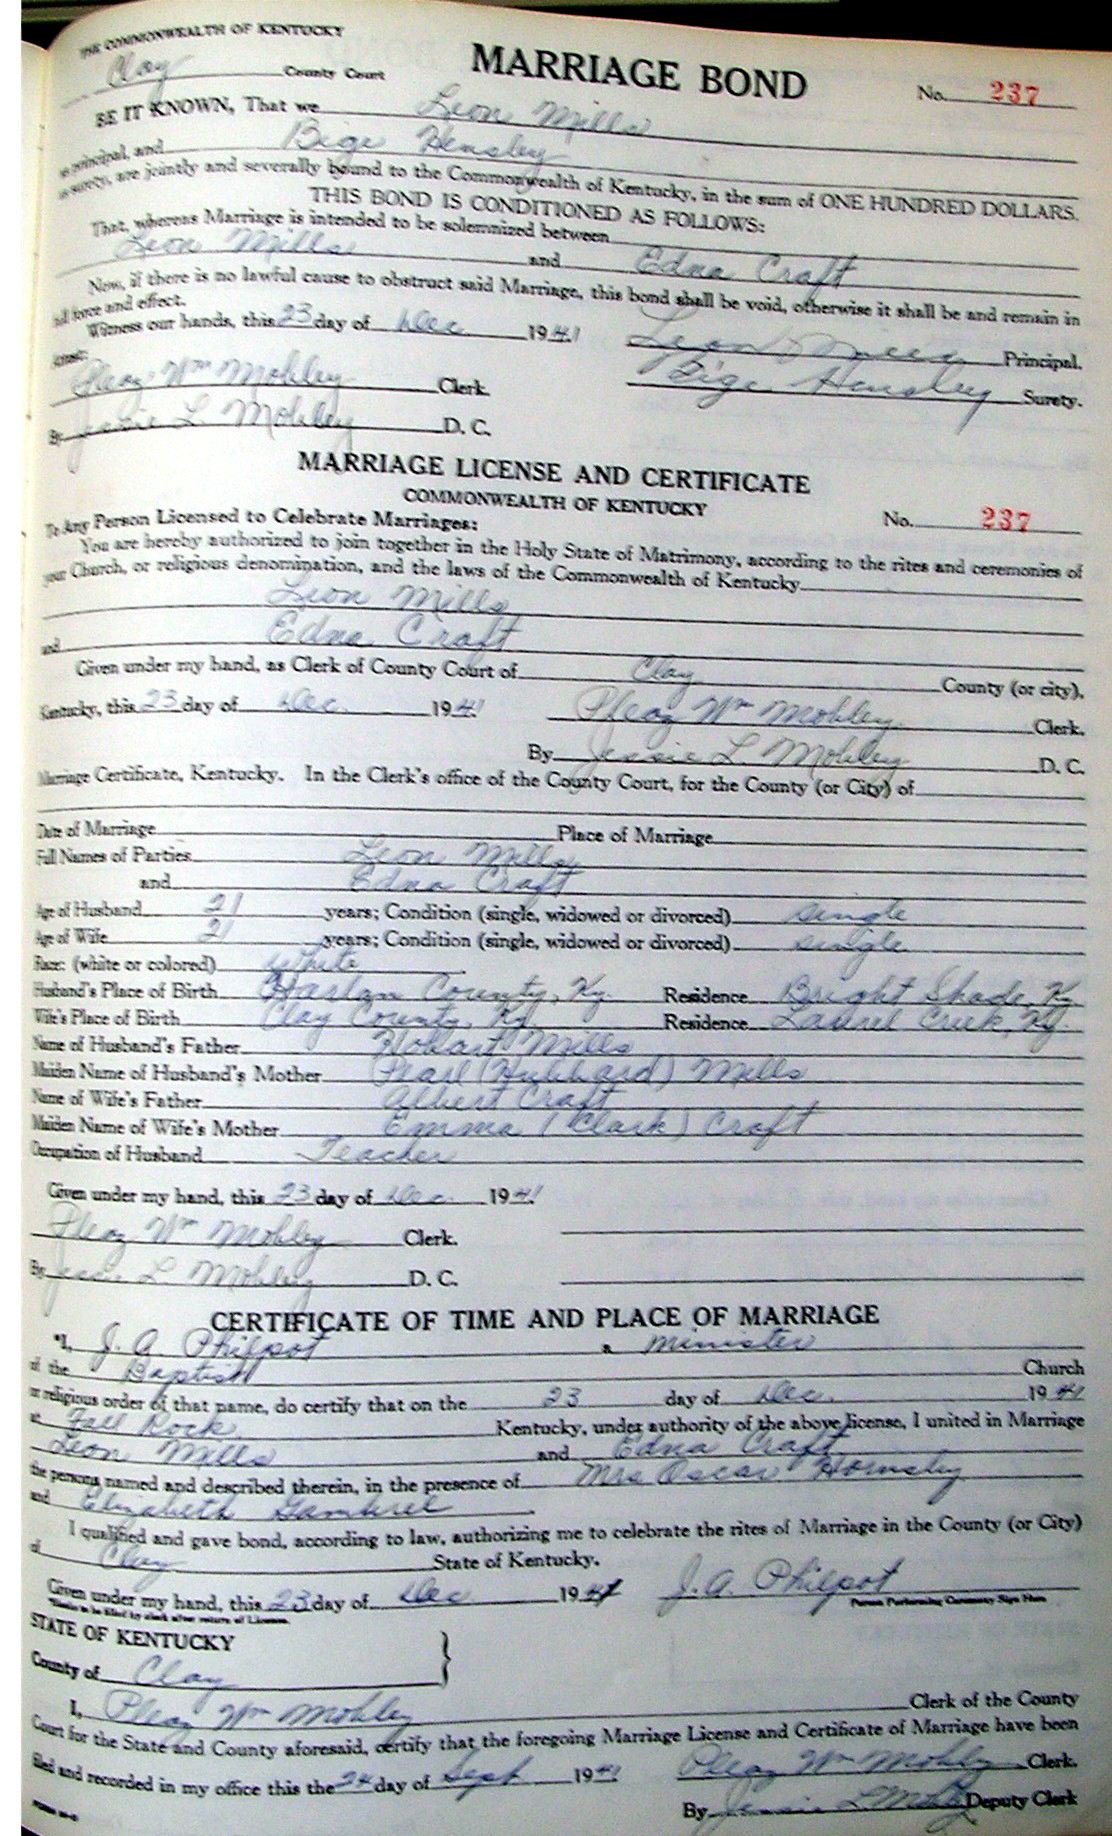 THE COMMONWEALTH OF KENTUCKY
MARRIAGE BOND
Clay County Court
No. 237
BE IT KNOWN, That we Leon Mills
as principal, and Bige Hensley
as surety, are jointly and severally bound to the Commonwealth of Kentucky, in the sum of ONE HUNDRED DOLLARS.
THIS BOND IS CONDITIONED AS FOLLOWS:
That, whereas Marriage is intended to be solemnized between
Leon Mills and Edna Craft
Now, if there is no lawful cause to obstruct said Marriage, this bond shall be void, otherwise it shall be and remain in
full force and effect.
Witness our hands, this 23 day of Dec 1941 Leon Mills Principal.
Attest:
Pleaz Wm Mobley Clerk. Bige Hensley Surety.
By Jessie L. Mobley D. C.
MARRIAGE LICENSE AND CERTIFICATE
COMMONWEALTH OF KENTUCKY
To Any Person Licensed to Celebrate Marriages: No. 237
You are hereby authorized to join together in the Holy State of Matrimony, according to the rites and ceremonies of
your Church, or religious denomination, and the laws of the Commonwealth of Kentucky
Leon Mills
and Edna Craft
Given under my hand, as Clerk of County Court of Clay County (or city),
Kentucky, this 23 day of Dec. 1941 Pleaz Wm Mobley Clerk.
By Jessie L. Mobley D. C.
Marriage Certificate, Kentucky. In the Clerk's office of the County Court, for the County (or City) of
Date of Marriage Place of Marriage
Full Names of Parties Leon Mills
and Edna Craft
Age of Husband 21 years; Condition (single, widowed or divorced) single
Age of Wife 21 years; Condition (single, widowed or divorced) single
Race: (white or colored) white
Husband's Place of Birth Harlan County, Ky. Residence Bright Shade, Ky
Wife's Place of Birth Clay County, Ky. Residence Laurel Creek, Ky.
Name of Husband's Father Hobart Mills
Maiden Name of Husband's Mother Pearl (Hubbard) Mills
Name of Wife's Father Albert Craft
Maiden Name of Wife's Mother Emma (Clark) Craft
Occupation of Husband Teacher
Given under my hand, this 23 day of Dec. 1941
Pleaz Wm Mobley Clerk.
By Jessie L. Mobley D. C.
CERTIFICATE OF TIME AND PLACE OF MARRIAGE
*I, J. A. Philpot a minister
of the Baptist Church
or religious order of that name, do certify that on the 23 day of Dec. 1941
at Fall Rock Kentucky, under authority of the above license, I united in Marriage
Leon Mills and Edna Craft
the persons named and described therein, in the presence of Mrs Oscar Hornsby
and Elizabeth Gambrel
I qualified and gave bond, according to law, authorizing me to celebrate the rites of Marriage in the County (or City)
of Clay State of Kentucky.
Given under my hand, this 23 day of Dec 1941 J. A. Philpot
*Blanks to be filled by clerk after return of License. Person Performing Ceremony Sign Here
STATE OF KENTUCKY
County of Clay
I, Pleaz Wm Mobley Clerk of the County
Court for the State and County aforesaid, certify that the foregoing Marriage License and Certificate of Marriage have been
filed and recorded in my office this the 24 day of Sept 1941 Pleaz Wm Mobley Clerk.
By Jessie L. Mobley Deputy Clerk